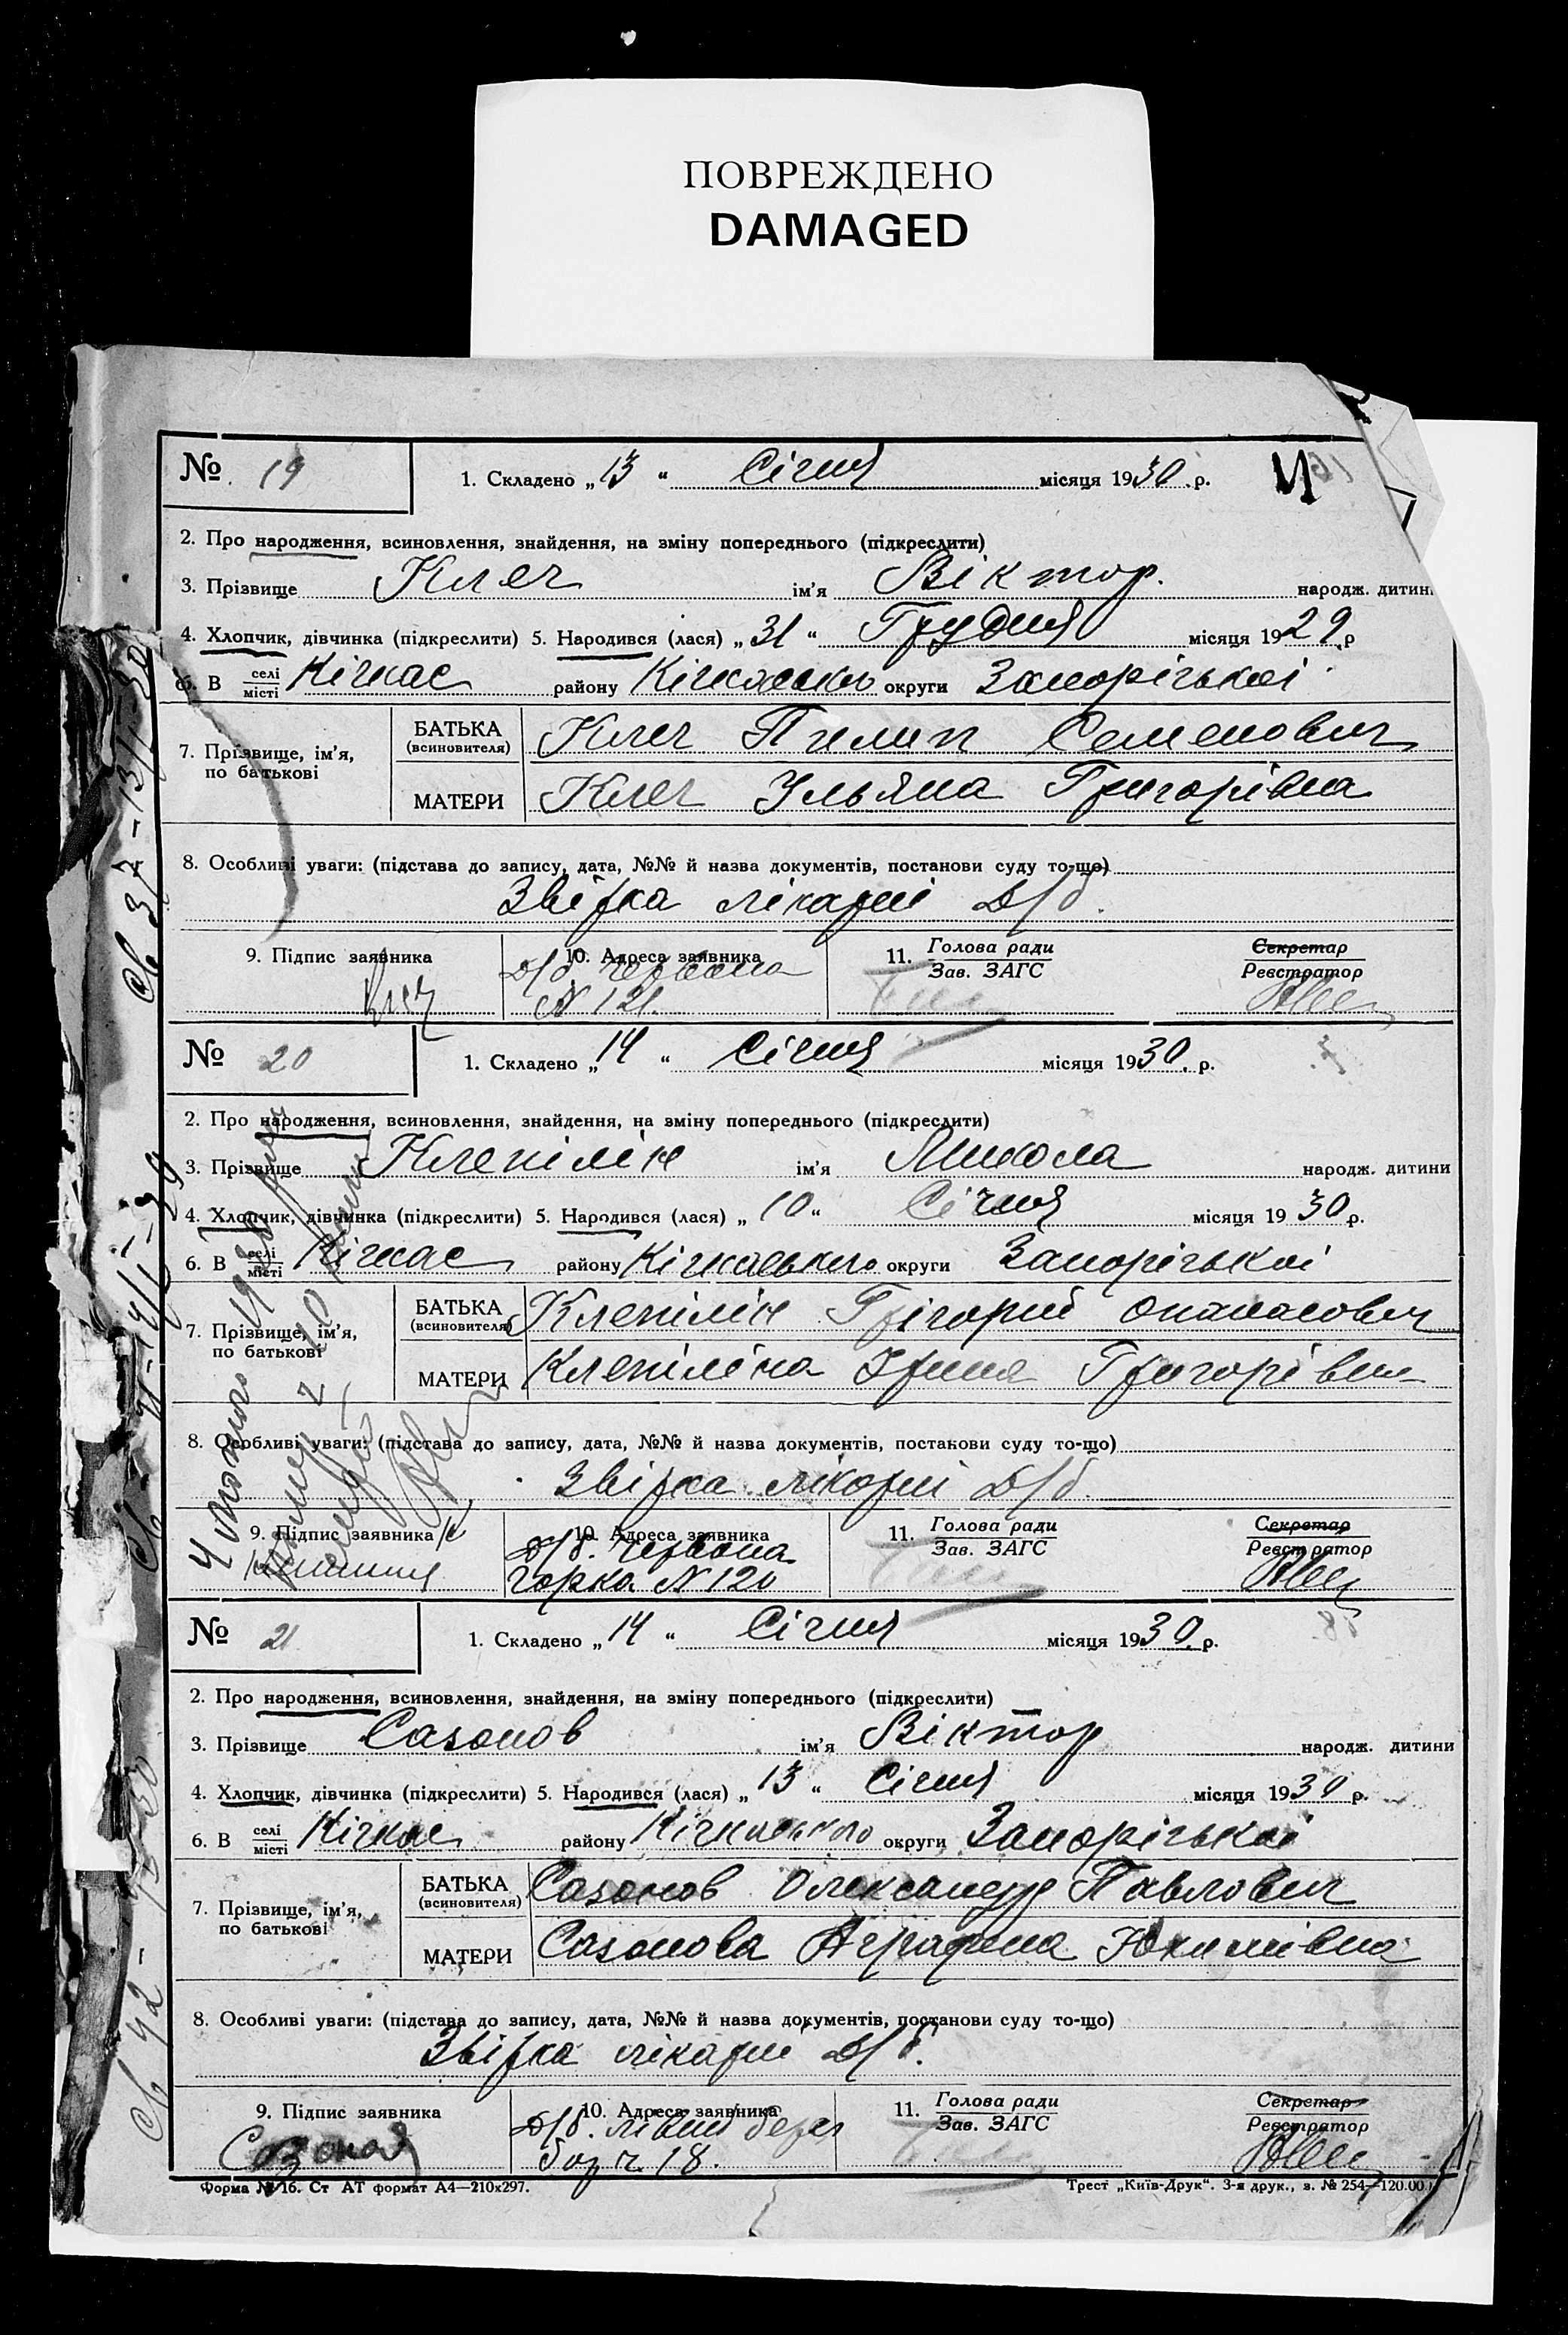 ПОВРЕЖДЕНО
DAMAGED
№ 19
1. Складено „13“ Січня місяця 1930 р.
2. Про народження, всиновлення, знайдення, на зміну попереднього (підкреслити)
3. Прізвище Клеч ім'я Віктор народж. дитин
4. Хлопчик, дівчинка (підкреслити) 5. Народився (лася) „31“ Грудня місяця 1929 р
6. В селі/місті Кічкас району Кічкаського округи Запорізької
7. Прізвище, ім'я, по батькові
БАТЬКА (всиновителя) Клеч Пилип Семенович
МАТЕРИ Клеч Ульяна Григорівна
8. Особливі уваги: (підстава до запису, дата, №№ й назва документів, постанови суду то-що)
Звірка лікарні Д/б.
9. Підпис заявника Клеч
10. Адреса заявника Д/б Червона N 121.
11. Голова ради/Зав. ЗАГС
Секретар/Реєстратор
№ 20
1. Складено „14“ Січня місяця 1930. р.
2. Про народження, всиновлення, знайдення, на зміну попереднього (підкреслити)
3. Прізвище Клепілін ім'я Микола народж. дитини
4. Хлопчик, дівчинка (підкреслити) 5. Народився (лася) „10“ Січня місяця 1930 р.
6. В селі/місті Кічкас району Кічкаського округи Запорізької
7. Прізвище, ім'я, по батькові
БАТЬКА (всиновителя) Клепілін Грігорий Опанасович
МАТЕРИ Клепіліна Ірина Григорівна
8. Особливі уваги: (підстава до запису, дата, №№ й назва документів, постанови суду то-що)
Звірка лікарні Д/б.
9. Підпис заявника
10. Адреса заявника Д/б. Червона горка N 120
11. Голова ради/Зав. ЗАГС
Секретар/Реєстратор
№ 21
1. Складено „14“ Січня місяця 1930. р.
2. Про народження, всиновлення, знайдення, на зміну попереднього (підкреслити)
3. Прізвище Сазонов ім'я Віктор народж. дитини
4. Хлопчик, дівчинка (підкреслити) 5. Народився (лася) „13“ Січня місяця 1930 р.
6. В селі/місті Кічкас району Кічкаського округи Запорізької
7. Прізвище, ім'я, по батькові
БАТЬКА (всиновителя) Сазонов Олександр Павлович
МАТЕРИ Сазонова Аграфена Юхимівна
8. Особливі уваги: (підстава до запису, дата, №№ й назва документів, постанови суду то-що)
Звірка лікарні Д/б.
9. Підпис заявника
10. Адреса заявника Д/б. лівий берег 18.
11. Голова ради/Зав. ЗАГС
Секретар/Реєстратор
Форма № 16. Ст АТ формат А4—210х297.
Трест „Київ-Друк“. 3-я друк., з. № 254—120.00